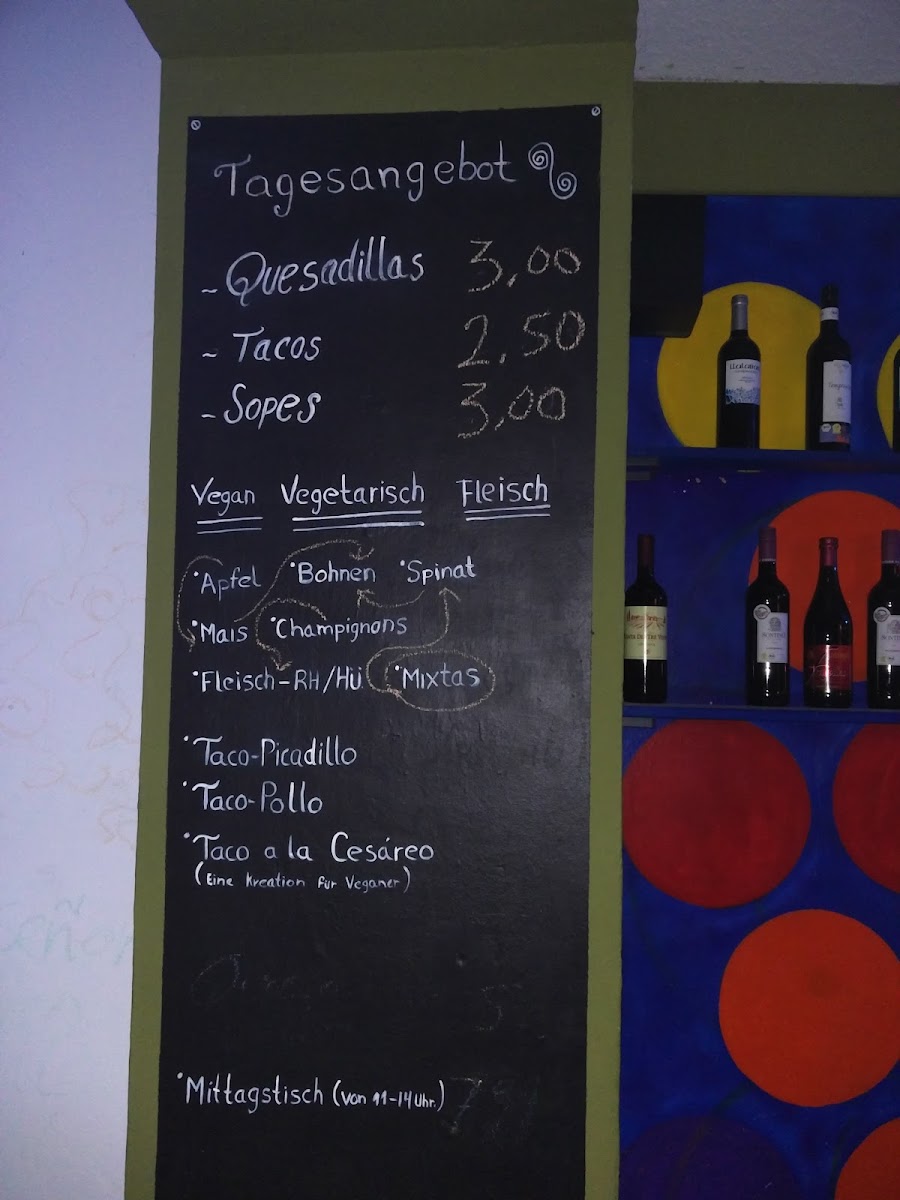 Tagesangebot
- Quesadillas 3,00
- Tacos 2.50
- Sopes 3,00
Vegan Vegetarisch Fleisch
• Apfel • Bohnen • Spinat
• Mais • Champignons
• Fleisch - RH/HÜ • Mixtas
• Taco-Picadillo
• Taco-Pollo
• Taco a la Cesáreo
(Eine Kreation für Veganer)
• Mittagstisch (von 11-14 Uhr.)